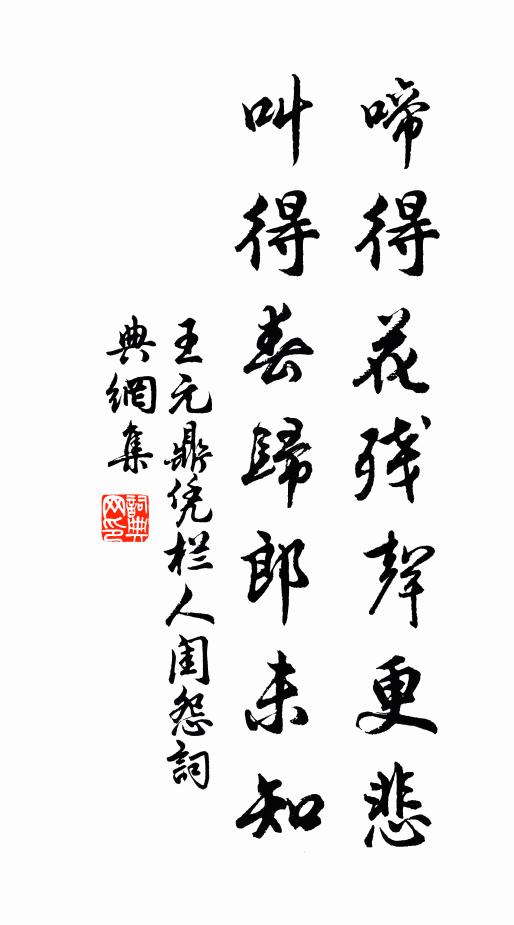 啼得花残聲更悲
叫得春歸郎未知
王元鼎凭栏人闺怨詞
典網集
詞典网印